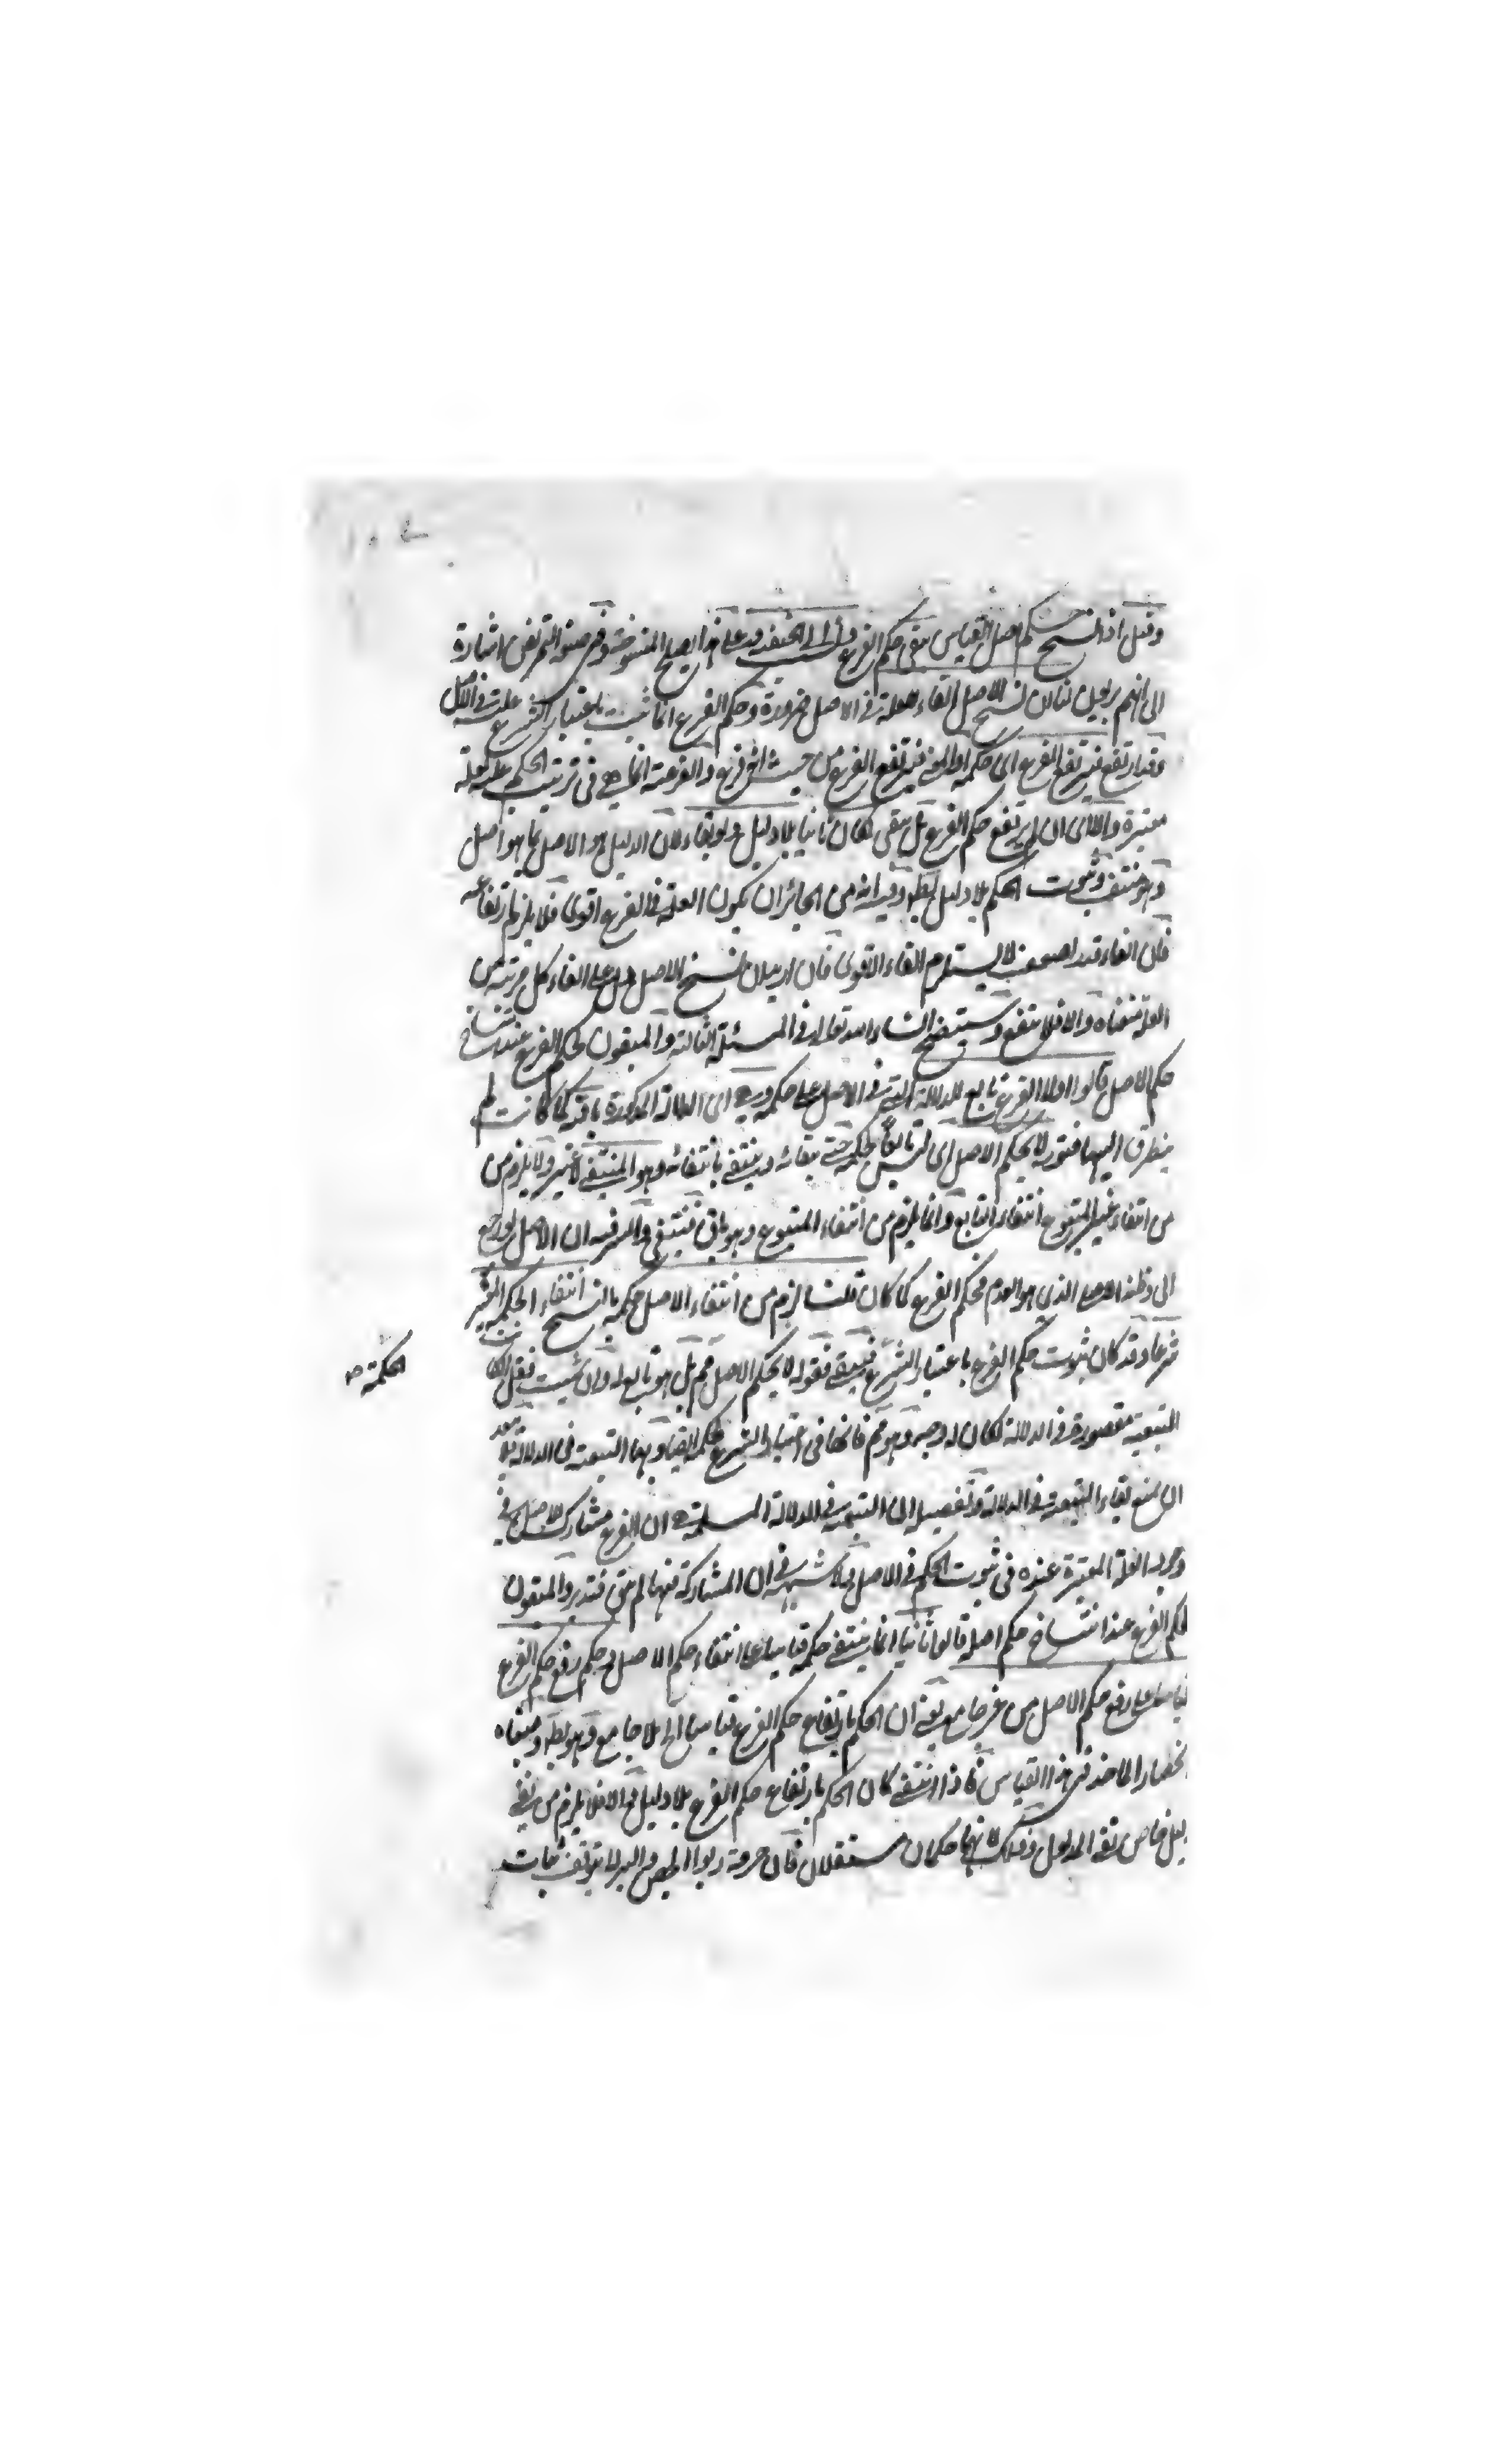 وقيل اذا نسخ حكم اصل القياس يبقى حكم الفرع ونسب الى الحنفية وعلى هذا يصح المنسوخة وفي صيغة التمريض اشارة
الى انهم بريئون لنا ان نسخ الاصل الغاء للعلة في الاصل ضرورة وحكم الفرع انما ثبت باعتبار الشرع علته في الاصل
وقد ارتفع فيرتفع الفرع اى حكمه او المعنى فيرتفع الفرع من حيث انه فرع والفرعية انما هي في ترتيب الحكم على علة
معتبرة والا اى ان لم يرتفع حكم الفرع بل يبقى كان ثابتا بلا دليل ولو بقاء لان الدليل هو الاصل بما هو اصل
وهو منتف وثبوت الحكم بلا دليل بط وفيه انه من الجائز ان يكون العلة في الفرع اقوى فلا يلزم ارتفاعه
فان الغاء قدر اضعف لا يستلزم الغاء الاقوى فان اريد ان نسخ الاصل دل على الغاء كل مرتبة من
العلة منعناه والا فلا ينفع وسيتضح انشاء الله تعالى في المسئلة الثالثة والمبقون لحكم الفرع عند انتساخ
حكم الاصل قالوا اولا الفرع تابع للدلالة التي في الاصل على حكمه وهي اى الدلالة المذكورة باقية كما كانت لم
يتطرق اليها فتور لا لحكم الاصل اى ليس تابعا لحكمه حتى يبقى ببقائه وينتفي بانتفائه وهو المنتفي لا غير ولا يلزم من
من انتفاء غير المتبوع انتفاء التابع وانما يلزم من انتفاء المتبوع وهو باق فينتفي والسر فيه ان الاصل لو رجع
الى الذي هو العدم فحكم الفرع كما كان قلنا لزم من انتفاء الاصل حكمه بالنسخ انتفاء الحكمة المعتبرة
شرعا وقد كان ثبوت حكم الفرع باعتبار الشرع فينتفي فقوله لا لحكم الاصل مم بل هو تابع له وان شئت فقل لو كانت
الحكمة صح
التبعية مقصورة في الدلالة لكان له وجه وهو مم فانها في اعتبار الشرع لحكمه ايضا وبها التبعية في الدلالة بعد
ان نمنع بقاء التبعية في الدلالة وتفصيله ان التبعية في الدلالة المسلمة هي ان الفرع مشارك للاصل في
وجود العلة المعتبرة عنده في ثبوت الحكم في الاصل ولا شبهة في ان المشاركة فيها لم يبق فتدبر والمبقون
لحكم الفرع عند انتساخ حكم اصله قالوا ثانيا انما ينتفي حكمه قياسا على انتفاء حكم الاصل فحكم رفع حكم الفرع
قياسا على رفع حكم الاصل من غير جامع يعني ان الحكم بارتفاع حكم الفرع قياسا الى بلا جامع وهو بط ومبناه
انحصار الماخذ في هذا القياس فاذا انتفى كان الحكم بارتفاع حكم الفرع بلا دليل والا فلا يلزم من نفي
دليل خاص نفي المدلول وذلك لانهما حكمان مستقلان فان حرمة ربوا الجص والبر لا يتوقف ثبات